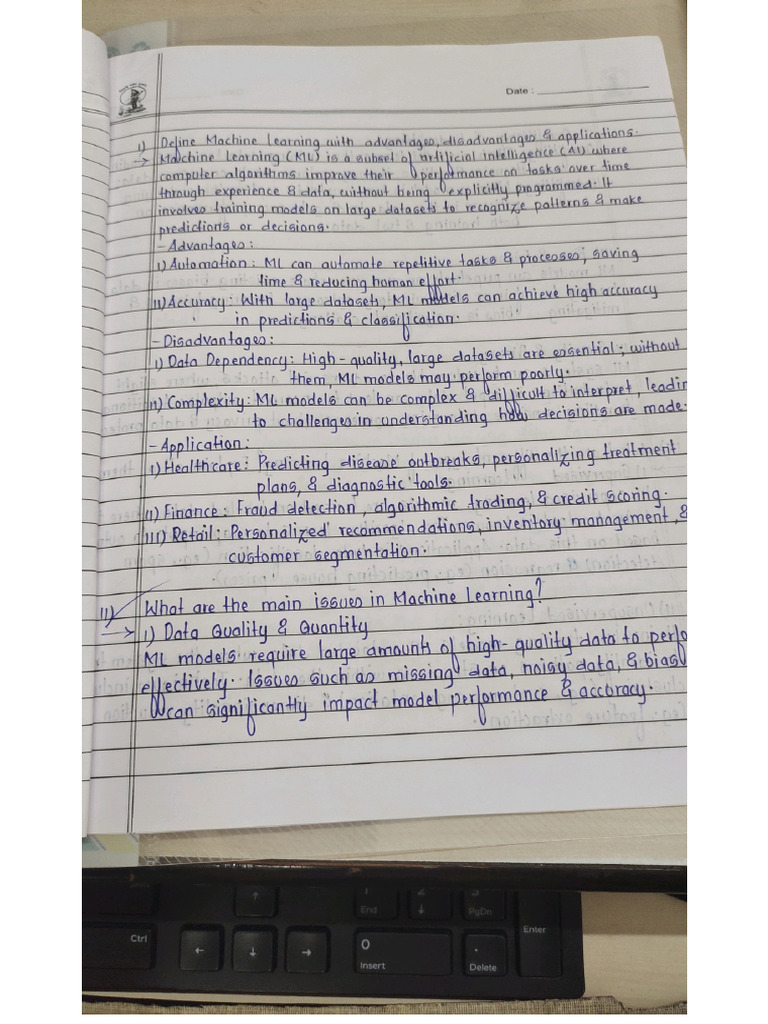 Date :
I) Define Machine Learning with advantages, disadvantages & applications.
→ Machine Learning (ML) is a subset of artificial intelligence (AI) where
computer algorithms improve their performance on tasks over time
through experience & data, without being explicitly programmed. It
involves training models on large datasets to recognize patterns & make
predictions or decisions.
- Advantages :
I) Automation : ML can automate repetitive tasks & processes, saving
time & reducing human effort.
II) Accuracy : With large datasets, ML models can achieve high accuracy
in predictions & classification.
- Disadvantages :
I) Data Dependency : High-quality, large datasets are essential; without
them, ML models may perform poorly.
II) Complexity : ML models can be complex & difficult to interpret, leadin
to challenges in understanding how decisions are made.
- Application :
I) Healthcare : Predicting disease outbreaks, personalizing treatment
plans, & diagnostic tools.
II) Finance : Fraud detection, algorithmic trading, & credit scoring.
III) Retail : Personalized recommendations, inventory management, &
customer segmentation.
II) What are the main issues in Machine Learning?
→ I) Data Quality & Quantity
ML models require large amounts of high-quality data to perfo
effectively. Issues such as missing data, noisy data, & bias
can significantly impact model performance & accuracy.
Ctrl
End
PgDn
Enter
0
Insert
.
Delete